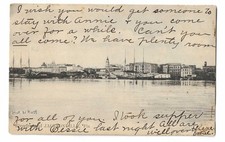 I wish you would get someone to
stay with Annie & you come
over for a while. Can't you
all come? We have plenty room
for all of you I took supper
with Bessie last night All very
well over there